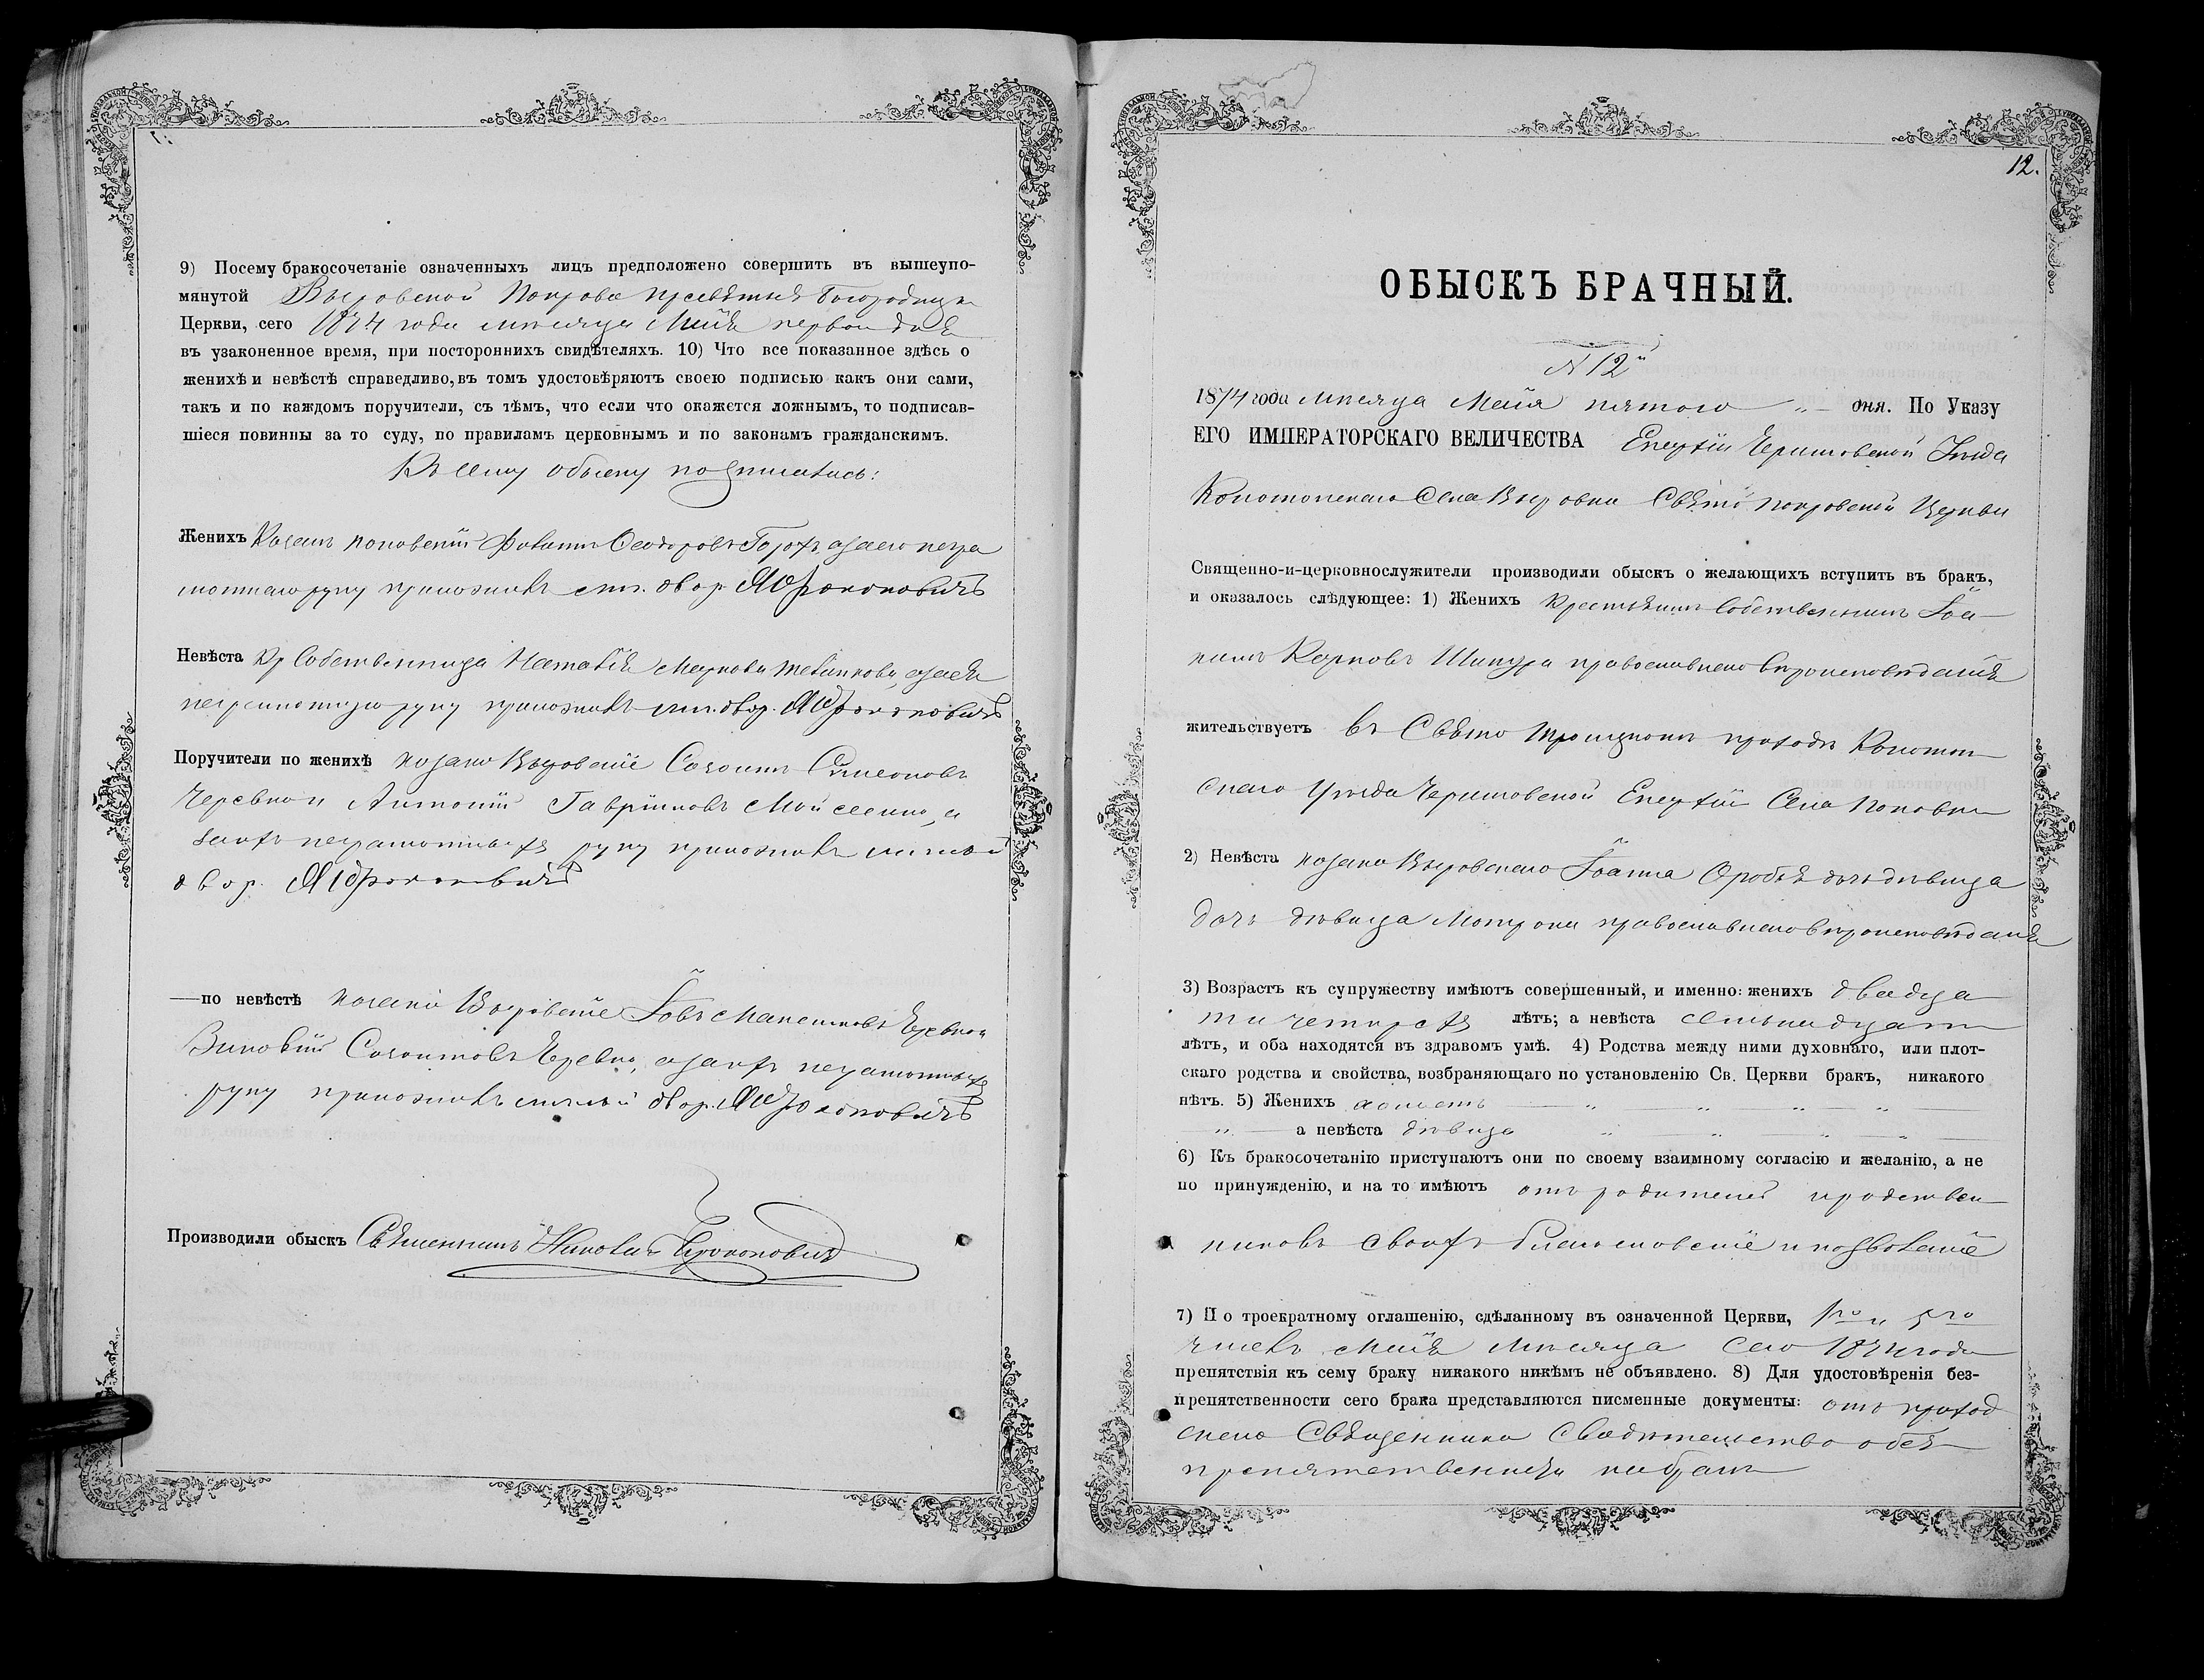 9) Посему бракосочетаніе означенныхъ лицъ предположено совершить въ вышеупо-
мянутой Выровской Покрова Пресвятыя Богородицы
Церкви, сего 1874 года месяца Мая первого дня
въ узаконенное время, при постороннихъ свидѣтеляхъ. 10) Что все показанное здѣсь о
женихѣ и невѣстѣ справедливо, въ томъ удостовѣряютъ своею подписью какъ они сами,
такъ и по каждомъ поручители, съ тѣмъ, что если что окажется ложнымъ, то подписав-
шіеся повинны за то суду, по правиламъ церковнымъ и по законамъ гражданскимъ.
Къ сему обыску подписались:
Женихъ Козакъ Поповскій Ѳеодоровъ а за его негра
мотнаго руку приложилъ двор. Прокоповичъ
Невѣста Кр Собственница Наталія Маркова а за ея
неграмотную руку приложилъ двор. Прокоповичъ
Поручители по женихѣ козаки Выровскіе Созонтъ Симеоновъ
Антоній Гавріиловъ Мойсеенко, а
за ихъ неграмотныхъ руку приложилъ
двор. Прокоповичъ
—по невѣстѣ козаки Выровскіе Іовъ Максимовъ
Зиновій Созонтовъ а за ихъ неграмотныхъ
руку приложилъ двор. Прокоповичъ
Производили обыскъ Священникъ Николай Прокоповичъ
12.
ОБЫСКЪ БРАЧНЫЙ.
N 12й
1874 года месяца Мая пятого " — дня. По Указу
ЕГО ИМПЕРАТОРСКАГО ВЕЛИЧЕСТВА Епархіи Черниговской Уезда
Конотопскаго Села Выровки Свято Покровской Церкви
Священно-и-церковнослужители производили обыскъ о желающихъ вступить въ бракъ,
и оказалось слѣдующее: 1) Женихъ Крестьянинъ Собственникъ Іоа-
кимъ Карповъ Шинура православнаго вѣроисповѣданія
жительствуетъ въ Свято Троицкомъ приходѣ Конотоп
скаго Уѣзда Черниговской Епархіи Села Поповки
2) Невѣста козака Выровскаго Іоанна дочь дѣвица
дочь дѣвица Мотрона православнаго вѣроисповѣданія
3) Возрастъ къ супружеству имѣютъ совершенный, и именно: женихъ двадца
ти четырехъ лѣтъ; а невѣста семьнадцати
лѣтъ, и оба находятся въ здравомъ умѣ. 4) Родства между ними духовнаго, или плот-
скаго родства и свойства, возбраняющаго по установленію Св. Церкви бракъ, никакого
нѣтъ. 5) Женихъ холостъ
а невѣста дѣвица
6) Къ бракосочетанію приступаютъ они по своему взаимному согласію и желанію, а не
по принужденію, и на то имѣютъ отъ родителей иродствен
никовъ своихъ благословеніе и позволеніе
7) По троекратному оглашенію, сдѣланному въ означенной Церкви, 1го и 5го
числъ Мая месяца сего 1874 года
препятствія къ сему браку никакого никѣмъ не объявлено. 8) Для удостовѣренія без-
препятственности сего брака представляются писменные документы: отъ приход
скаго Священника Свидѣтельство о без
препятственности на бракъ